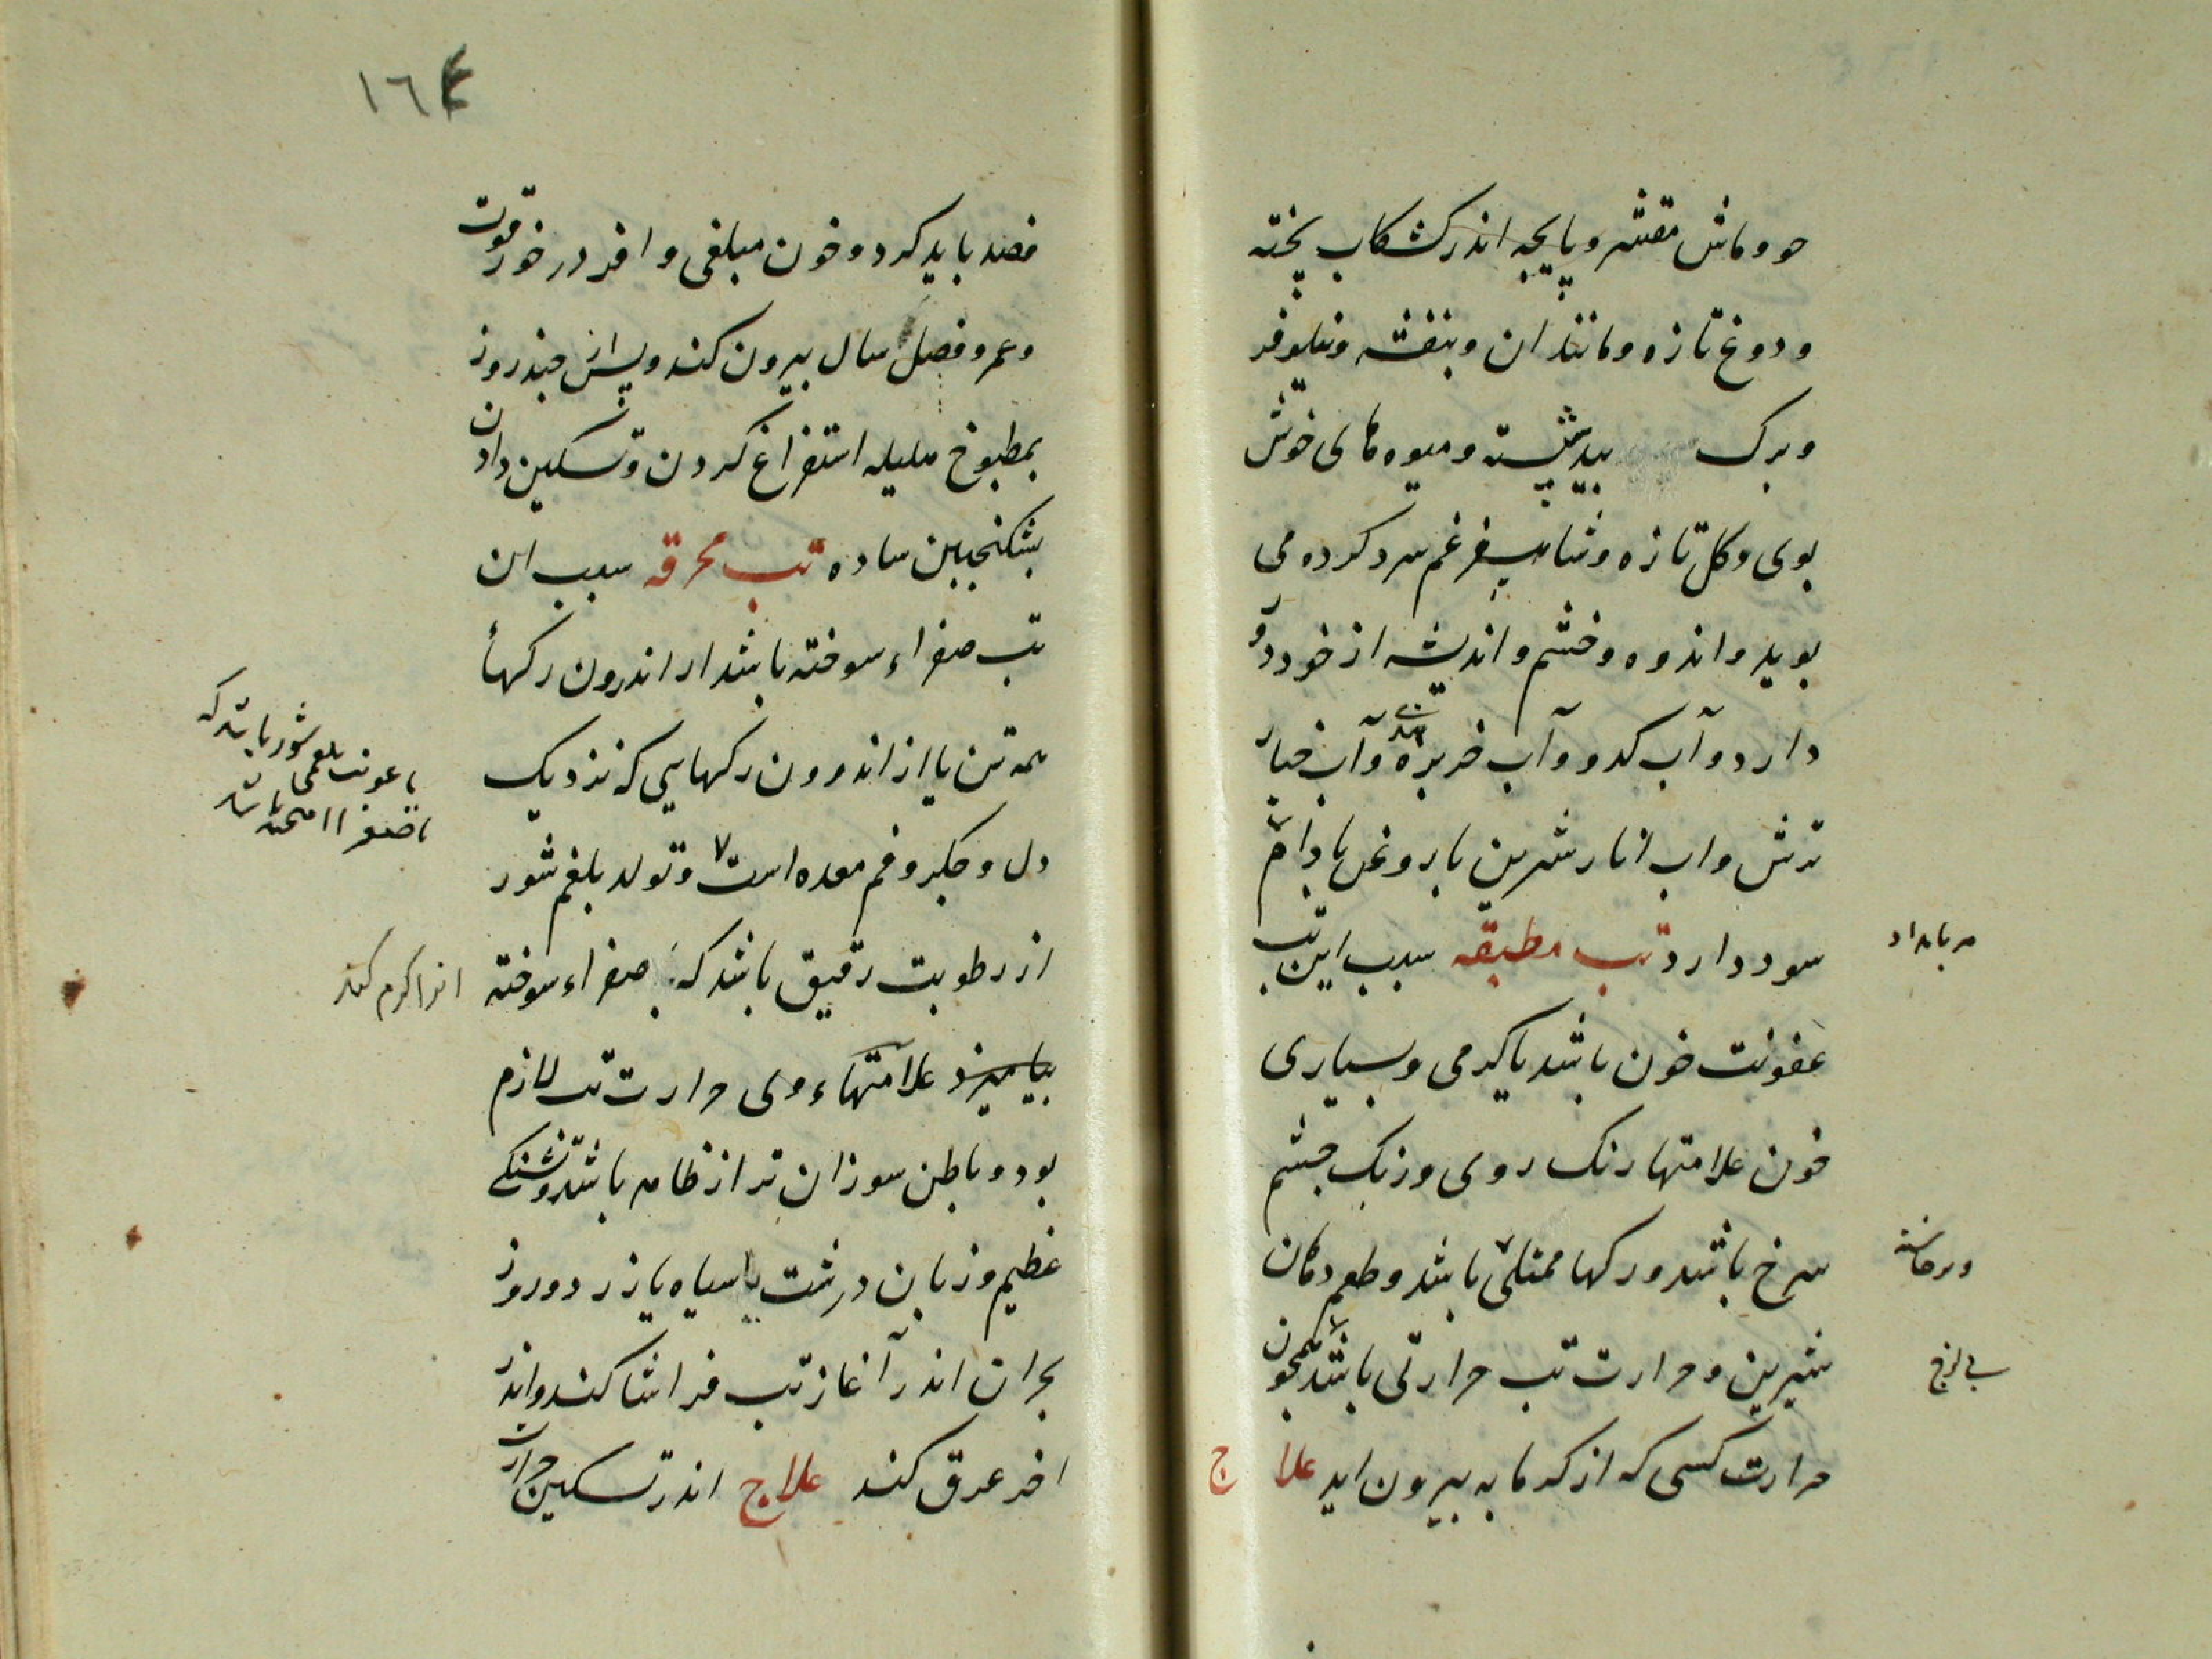 جو و ماش مقشر و پایچه اندر کشکاب پخته
و دوغ تازه و مانند ان و بنفشه و نیلوفر
و برک بید شسته و میوه های خوش
بوی و کل تازه و شاه سپرغم سرد کرده می
بوید و اندوه و خشم و اندیشه از خود دور
دارد و آب کدو و آب خربزه و آب خیار
ترش و اب انار شیرین با روغن بادام
سود دارد تب مطبقه سبب این تب
هر بامداد
عفونت خون باشد یا کرمی و بسیاری
خون علامتها رنک روی و رنک چشم
سرخ باشد و رکها ممتلی باشد و طعم دهان
و برخاسته
شیرین و حرارت تب حرارتی باشد همچون
حرارت کسی که از کرمابه بیرون اید علاج
١٦٤
فصد باید کرد و خون مبلغی وافر در خور قوت
و عمر و فصل سال بیرون کند و پس از چند روز
بمطبوخ هلیله استفراغ کردن و تسکین دادن
بسکنجبین ساده تب محرقه سبب ان
تب صفراء سوخته باشد از اندرون رکها
همه تن یا از اندرون رکهایی که نزدیک
دل و جکر و فم معده است و تولد بلغم شور
یا عفونت بلغمی شور باشد که
با صفرا امیخته باشد
از رطوبت رقیق باشد که بصفراء سوخته
انرا کرم کند
بیامیزد علامتهاء وی حرارت تب لازم
بود و باطن سوزان تر از ظاهر باشد و تشنکی
عظیم و زبان درشت یا سیاه یا زرد و روز
بحران اندر آغاز تب فراشا کند و اندر
اخر عرق کند علاج اندر تسکین حرارت